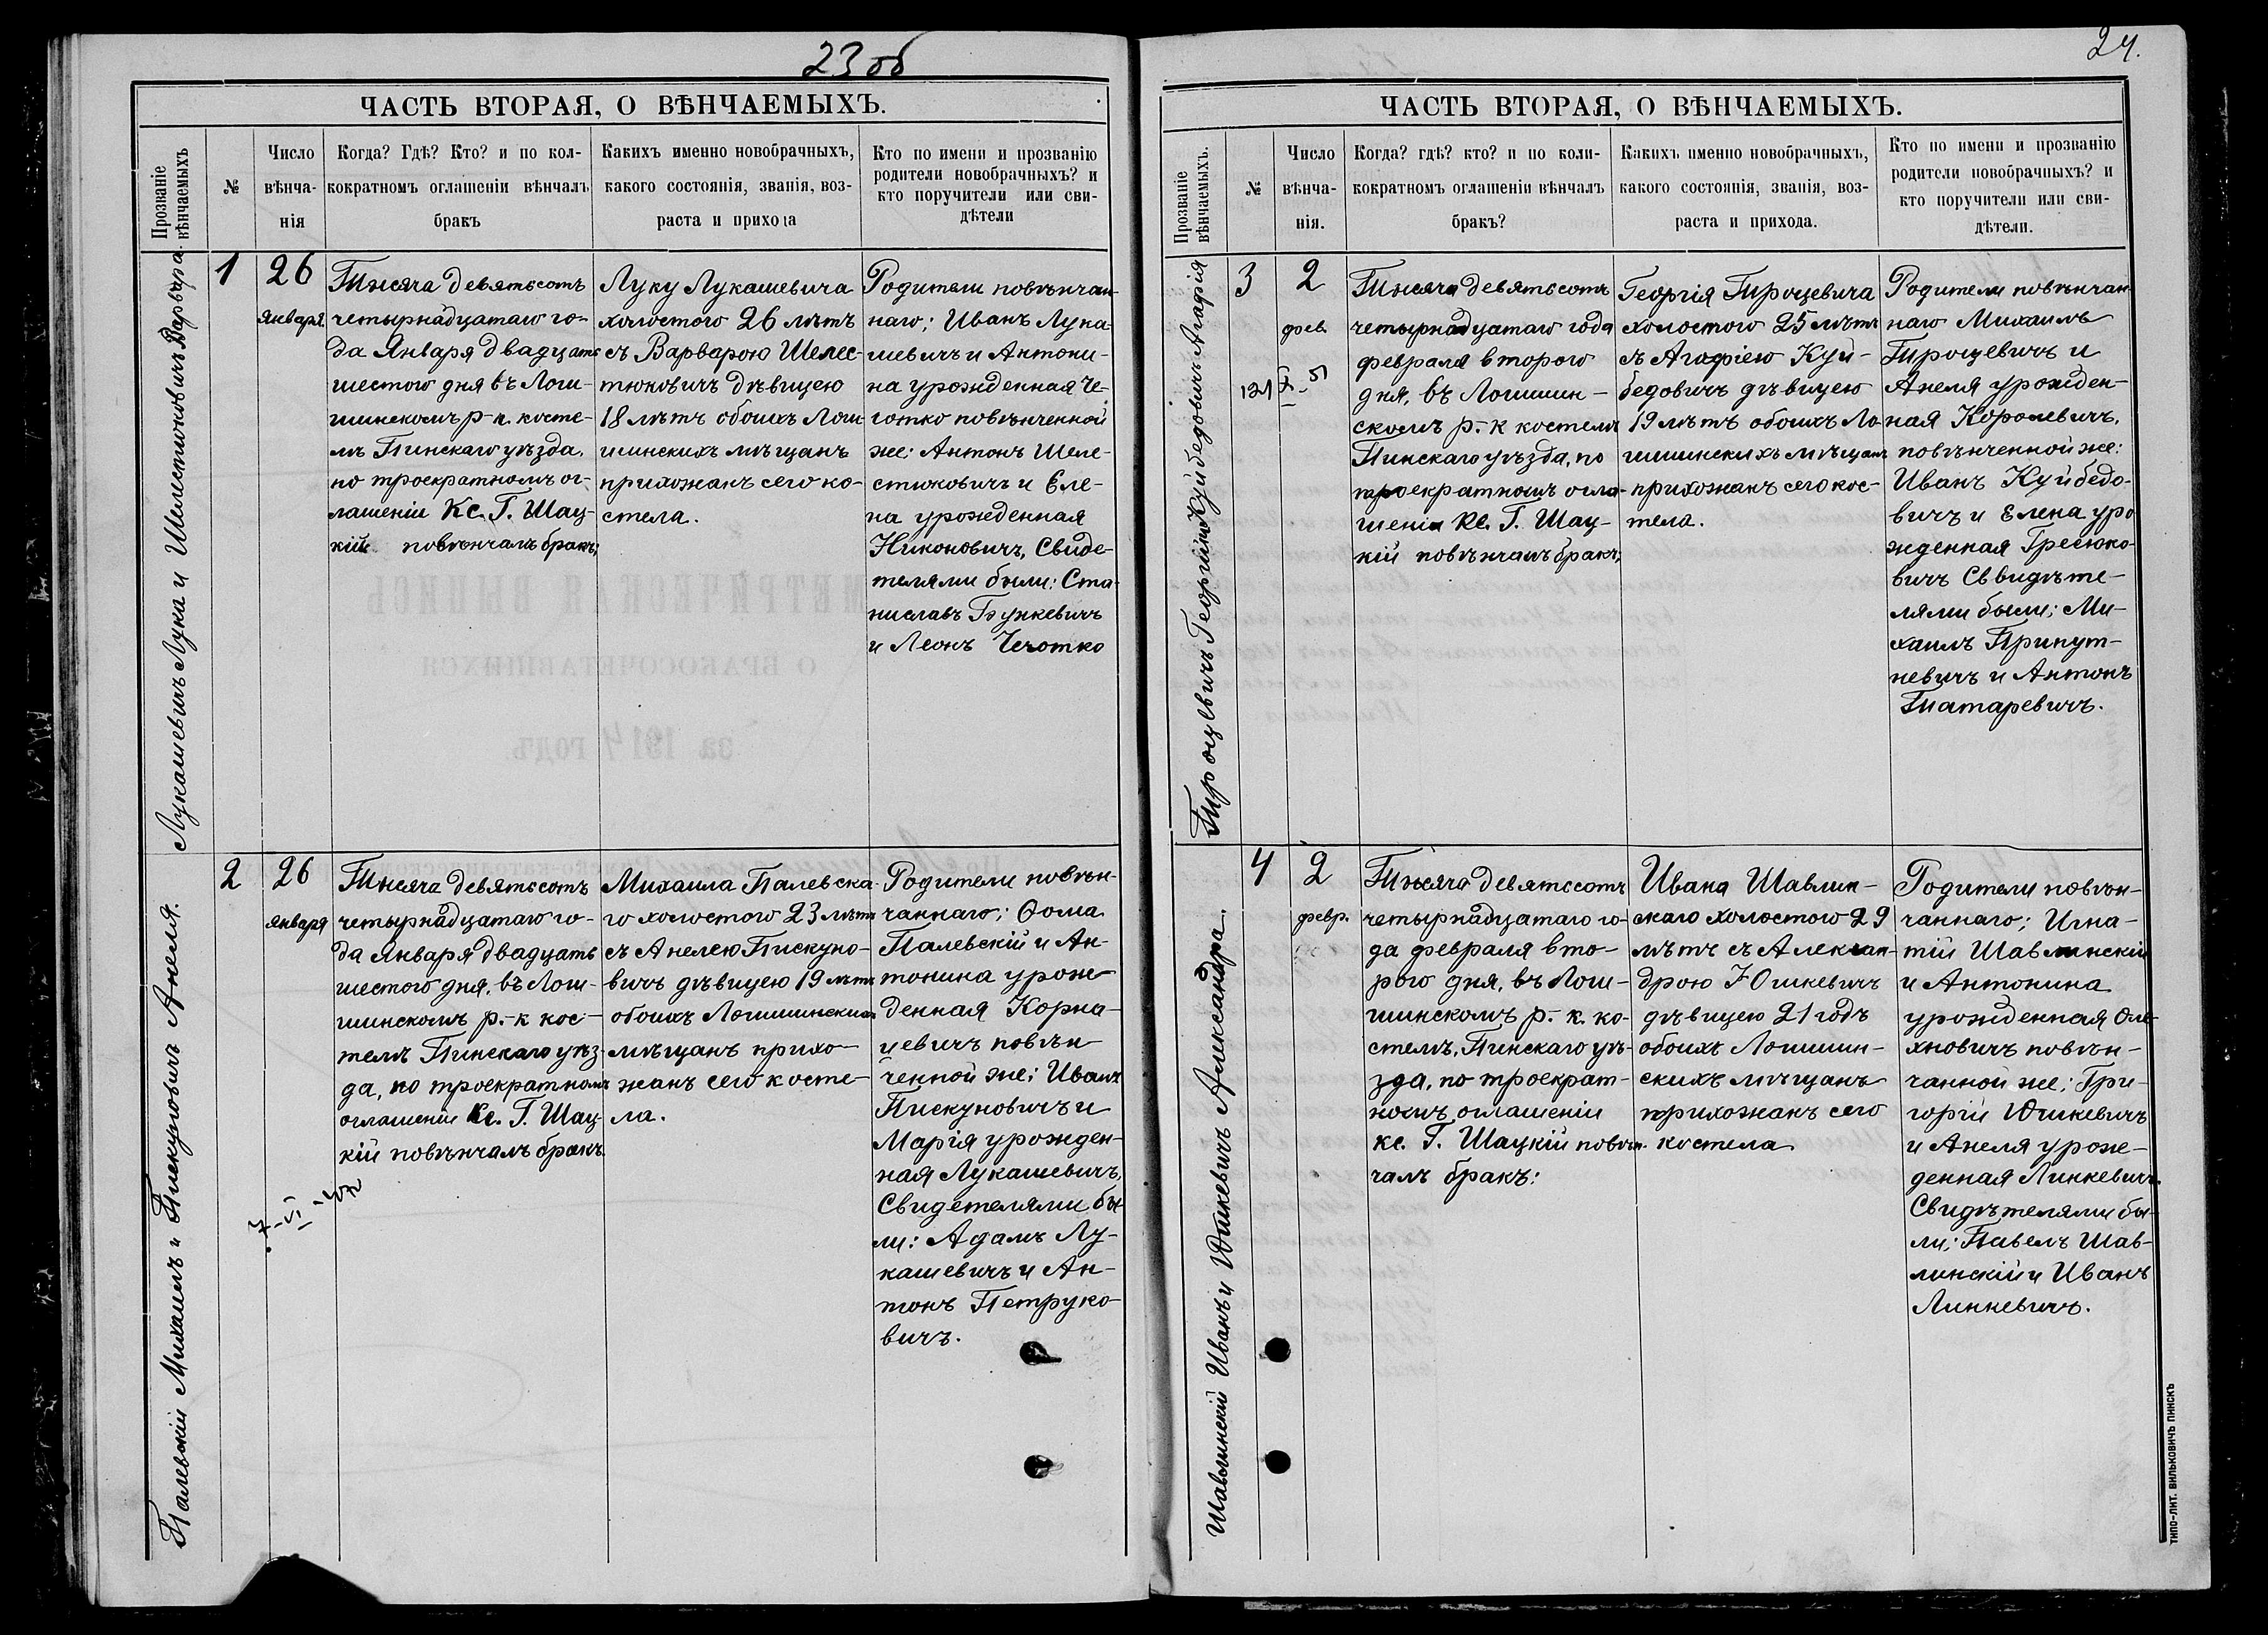 23 об
ЧАСТЬ ВТОРАЯ, О ВѢНЧАЕМЫХЪ.
Прозваніе
вѣнчаемыхъ
№
Число
вѣнча-
нія
Когда? Гдѣ? Кто? и по кол-
кократномъ оглашеніи вѣнчалъ
бракъ
Какихъ именно новобрачныхъ,
какого состоянія, званія, воз-
раста и прихода
Кто по имени и прозванію
родители новобрачныхъ? и
кто поручители или сви-
дѣтели
Лукашевичъ Лука и Шелестюковичъ Варвара
1
26
Января
Тысяча девятьсотъ
четырнадцатаго го-
да Января двадцать
шестого дня въ Логи-
шинскомъ р-к. косте-
лѣ Пинскаго уѣзда,
по троекратномъ ог-
лашеніи Кс. Г. Шац-
кій повѣнчалъ бракъ;
Луку Лукашевича
холостого 26 лѣтъ
съ Варварою Шелес-
тюковичъ дѣвицею
18 лѣтъ обоихъ Логи-
шинскихъ мѣщанъ
прихожанъ сего ко-
стела.
Родители повѣнчан-
наго; Иванъ Лука-
шевичъ и Антони-
на урожденная Че-
чотко повѣнченной
же: Антонъ Шеле-
стюковичъ и Еле-
на урожденная
Никоновичъ, Свиде-
телями были: Ста-
ниславъ Бункевичъ
и Леонъ Чечотко
Палевскій Михаилъ и Пискуновичъ Анеля.
2
26
января
7-VI-
Тысяча девятьсотъ
четырнадцатаго го-
да Января двадцать
шестого дня, въ Логи-
шинскомъ р.-к кос-
телѣ Пинскаго уѣз-
да, по троекратномъ
оглашеніи Кс. Г. Шац-
кій повѣнчалъ бракъ
Михаила Палевска-
го холостого 23 лѣтъ
съ Анелею Пискуно-
вичъ дѣвицею 19 лѣтъ
обоихъ Логишинскихъ
мѣщанъ прихо-
жанъ сего косте-
ла.
Родители повѣн-
чаннаго; Ѳома
Палевскій и Ан-
тонина урож-
денная Корна-
цевичъ повѣн-
ченной же; Иванъ
Пискуновичъ и
Марія урожден-
ная Лукашевичъ,
Свидетелями бы-
ли: Адамъ Лу-
кашевичъ и Ан-
тонъ Петруко-
вичъ.
24.
ЧАСТЬ ВТОРАЯ, О ВѢНЧАЕМЫХЪ.
Прозваніе
вѣнчаемыхъ.
№
Число
вѣнча-
нія.
Когда? гдѣ? кто? и по коли-
кократномъ оглашеніи вѣнчалъ
бракъ?
Какихъ именно новобрачныхъ,
какого состоянія, званія, воз-
раста и прихода.
Кто по имени и прозванію
родители новобрачныхъ? и
кто поручители или сви-
дѣтели.
Тироцевичъ Георгій и Куйбедовичъ Агафія
3
2
фев.
Тысяча девятьсотъ
четырнадцатаго года
февраля второго
дня, въ Логишин-
скомъ р.-к костелѣ
Пинскаго уѣзда, по
троекратномъ огла-
шеніи Кс. Г. Шац-
кій повѣнчалъ бракъ;
Георгія Тироцевича
холостого 25 лѣтъ
съ Агафіею Куй-
бедовичъ дѣвицею
19 лѣтъ обоихъ Ло-
гишинскихъ мѣщанъ
прихожанъ сего кос-
тела.
Родители повѣнчан
наго Михаилъ
Тироцевичъ и
Анеля урожден-
ная Королевичъ,
повѣнченной же:
Иванъ Куйбедо-
вичъ и Елена уро
жденная Гресюко-
вичъ Свидѣте-
лями были; Ми-
хаилъ Припут-
невичъ и Антонъ
Татаревичъ.
Шавлинскій Иванъ и Юшкевичъ Александра.
4
2
февр.
Тысяча девятьсотъ
четырнадцатаго го-
да февраля вто-
рого дня, въ Логи-
шинскомъ р.-к. ко-
стелѣ, Пинскаго уѣ-
зда, по троекрат-
номъ оглашеніи
кс. Г. Шацкій повѣн-
чалъ бракъ:
Ивана Шавлин-
скаго холостого 29
лѣтъ съ Алексан-
дрою Юшкевичъ
дѣвицею 21 годъ
обоихъ Логишин-
скихъ мѣщанъ
прихожанъ сего
костела
Родители повѣн-
чаннаго; Игна-
тій Шавлинскій
и Антонина
урожденная Оле-
хновичъ повѣн-
чанной же; Гри-
горій Юшкевичъ
и Анеля урож-
денная Линкевичъ.
Свидѣтелями бы-
ли; Павелъ Шав-
линскій и Иванъ
Линкевичъ.
ТИПО-ЛИТ. ВИЛЬКОВИЧЪ ПИНСКЪ